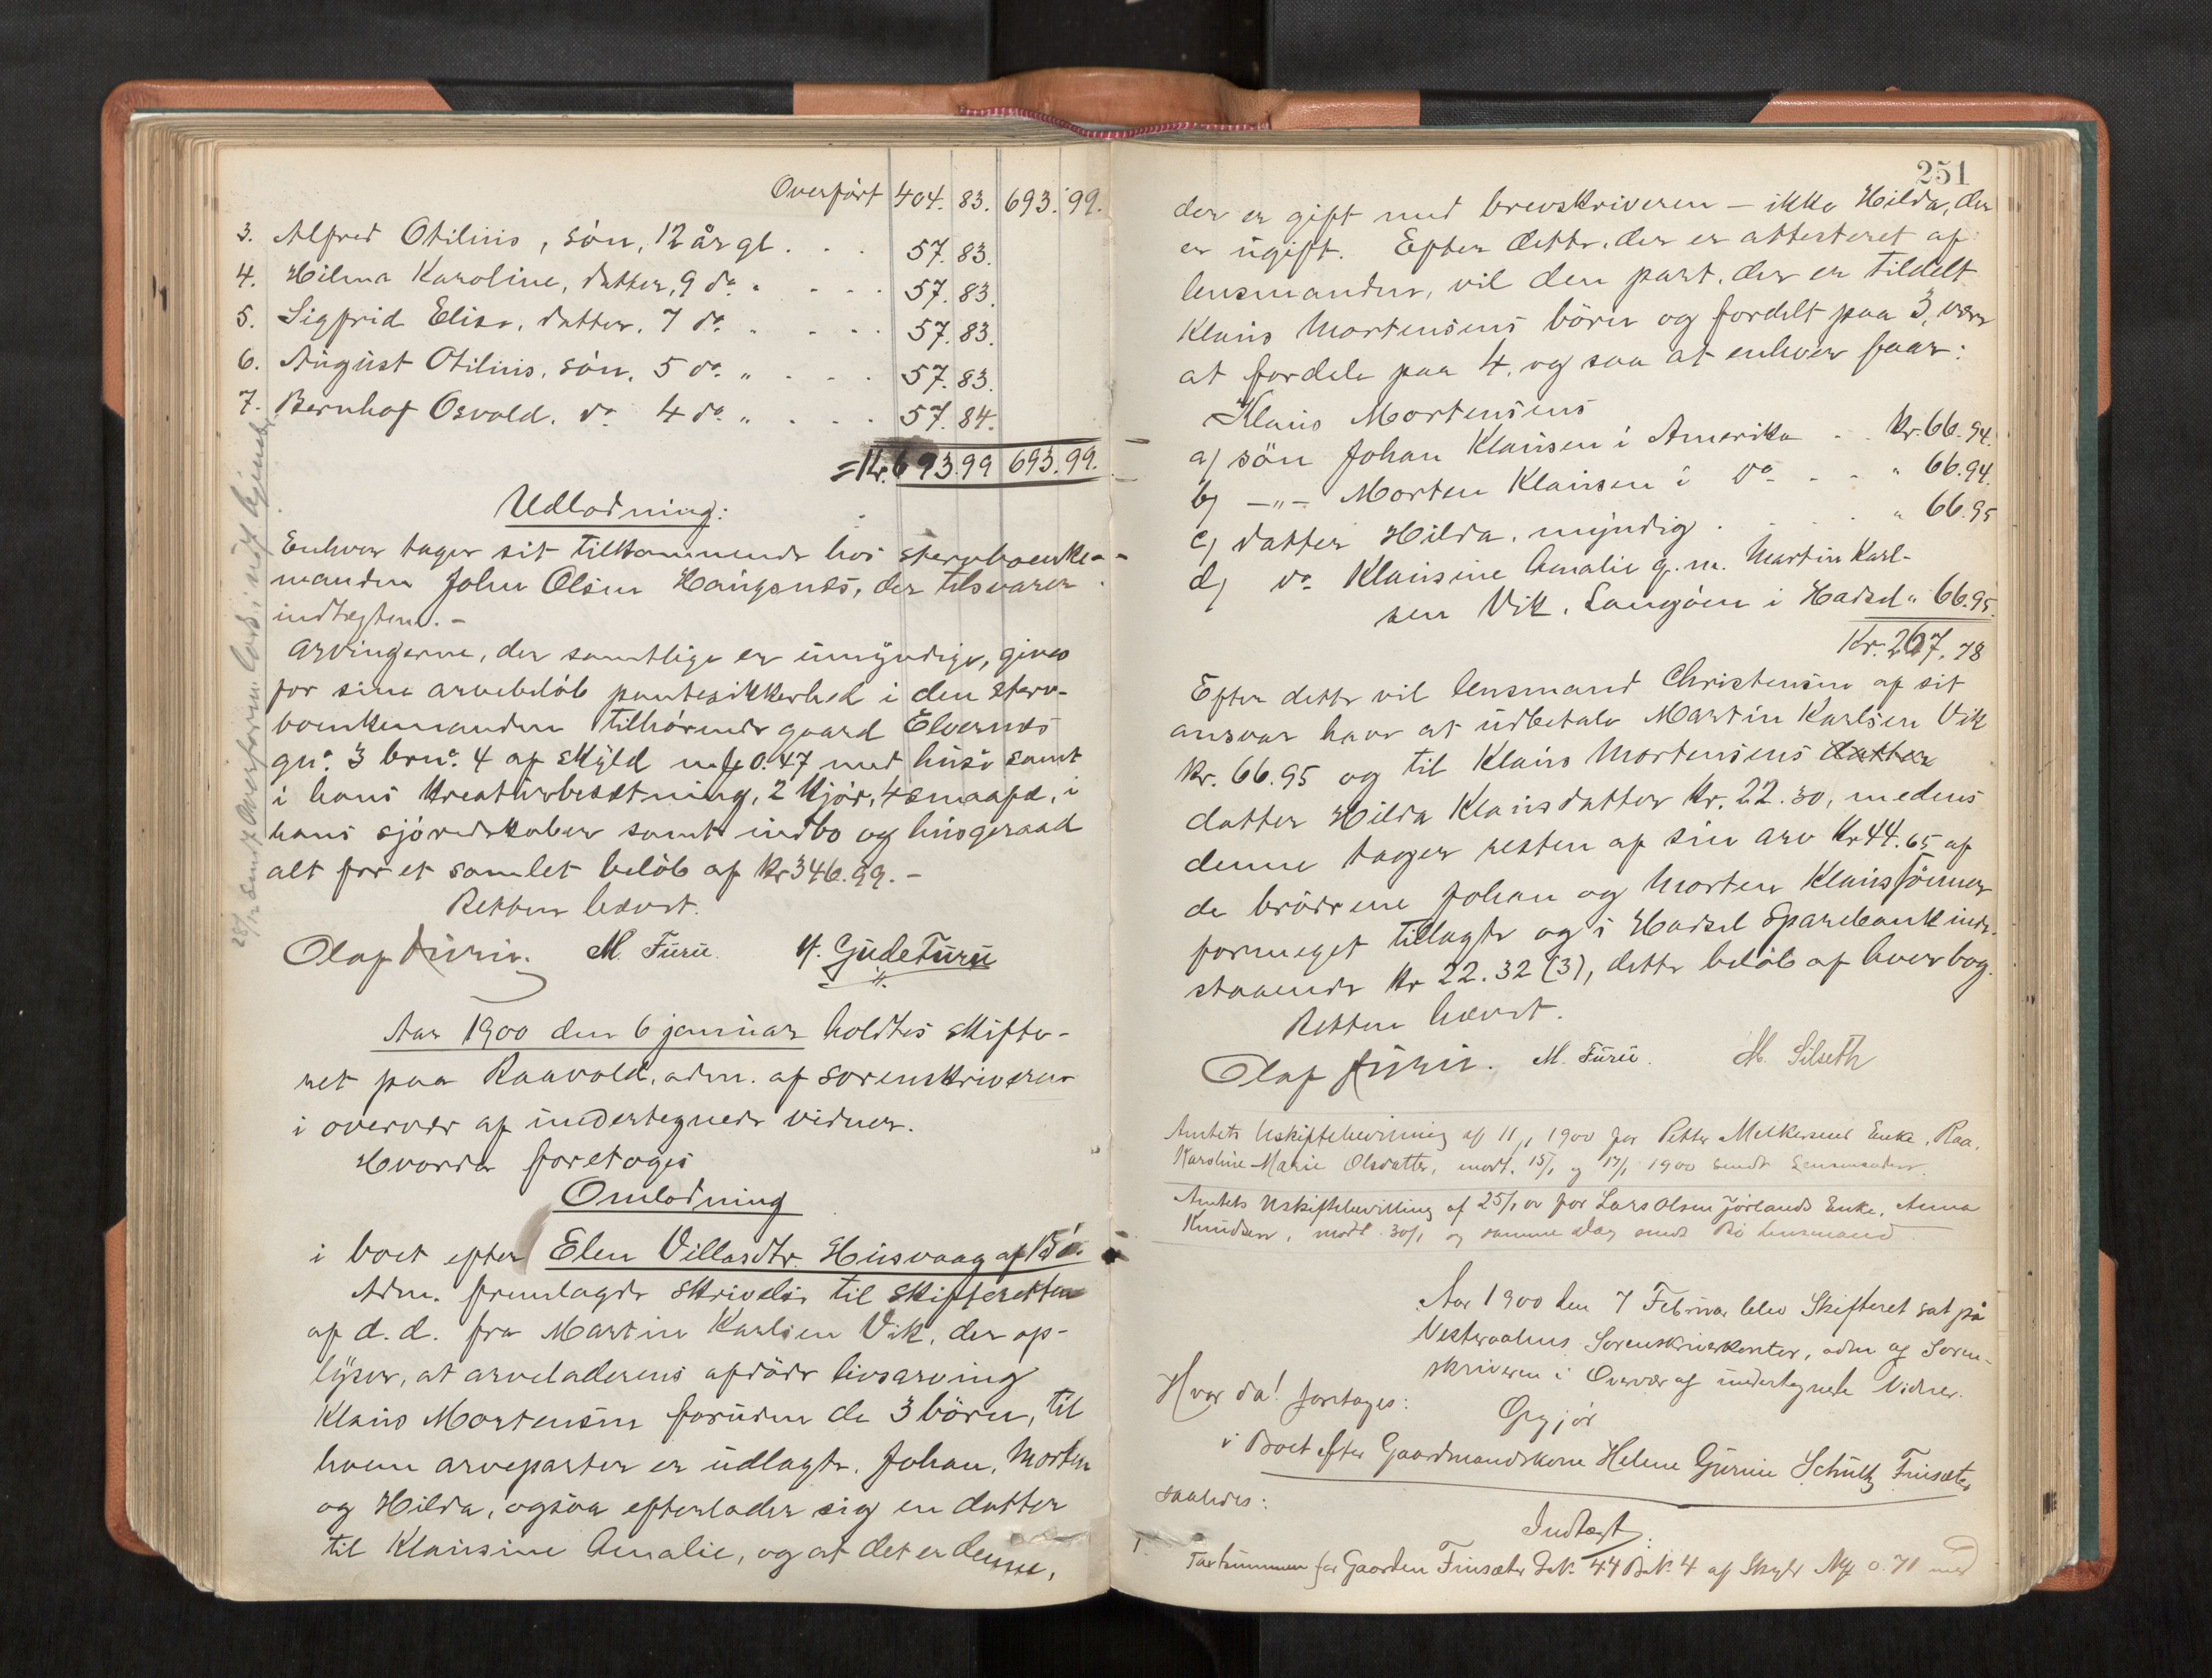 Overført 404. 83. 693. 99.
3. Alfred Otilius, søn, 12 år gl. . . 57. 83.
4. Hilma Karoline, datter, 9 do. " . . . 57. 83.
5. Sigfrid Elise, datter, 7 do. . . . 57. 83.
6. August Otilius, søn, 5 do. " . . . 57. 83.
7. Bernhof Osvald, do 4 do. " . . . 57. 84.
= Kr. 693.99 693.99.
Udlodning:
Enhver tager sit tilkommende hos sterboenke-
manden John Olsen Haugsnes, der tilsvarer
indtægten. -
Arvingerne, der samtlige er umyndige, gives
for sine arvebeløb pantesikkerhed i den sterv-
boenkemanden tilhørende gaard Elvernes
gno. 3 brno. 4 af skyld mk 0.47 med huse samt
i hans kreaturbesætning, 2 kjør, 4 smaafæ, i
hans sjøredskaber samt indbo og husgeraad
alt for et samlet beløb af kr 346.99. -
Retten hævet.
Olaf M. Furu. H. Gude Furu
Aar 1900 den 6 januar holdtes skifte-
ret paa Raavold, adm. af sorenskriveren
i overvær af undertegnede vidner.
Hvorda foretoges
Omlodning
i boet efter Elen Villasdtr. Husvaag af
Adm. fremlagde skrivelse til skifteretten
af d. d. fra Martin Karlsen Vik, der op-
lyser, at arveladerens afdøde livsarving
Klaus Mortensen foruden de 3 børn, til
hvem arveparter er udlagte, Johan, Morten
og Hilda, ogsaa efterlader sig en datter
til Klausine Amalie, og at det er denne,
251
der er gift med brevskriveren - ikke Hilda, der
er ugift. Efter dette, der er attesteret af
lensmanden, vil den part, der er tildelt
Klaus Mortensens børn og fordelt paa 3, være
at fordele paa 4, og saa at enhver faar:
Klaus Mortensens
a) søn Johan Klausen i Amerika . . kr. 66.94.
b) -"- Morten Klausen i do . . " 66.94.
c) datter Hilda, myndig . . . . " 66.95
d) do Klausine Amalie g. m. Martin Karl-
sen Vik, Langøen i Hadsel " 66.95.
Kr. 267.78
Efter dette vil lensmand Christensen af sit
ansvar have at udbetale Martin Karlsen Vik
kr. 66.95 og til Klaus Mortensens datter
datter Hilda Klausdatter kr. 22.30, medens
denne tager resten af sin arv kr 44.65 af
de brødrene Johan og Morten Klaussønner
formeget tillagte og i Hadsel Sparebank inde-
staaende kr 22.32 (3), dette beløb af hver bog.
Retten hævet.
Olaf M. Furu. M. Silseth
Amtets Uskiftebevilling af 11/1 1900 for Petter Melkersens Enke, Raa,
Karoline Marie Olsdatter, modt. 15/1 og 17/1 1900 sendt Lensmanden.
Amtets Uskiftebevilling af 25/1 00 for Lars Olsen Jørlands Enke, Anna
Knudsen, modt. 30/1 og samme dag sendt Bø lensmand
Aar 1900 den 7 Februar blev Skifteret sat på
Vesteraalens Sorenskriverkontor, adm af Soren-
skriveren i Overvær af undertegnede Vidner.
Hvor da! foretoges:
Opgjør
i Boet efter Gaardmandskone Helene Gurine Schultz Finsæter
saaledes:
Indtægt:
1. Taxtsummen for Gaarden Finsæter G.No. 44 B.No. 4 af Skyld Mk 0.71 med